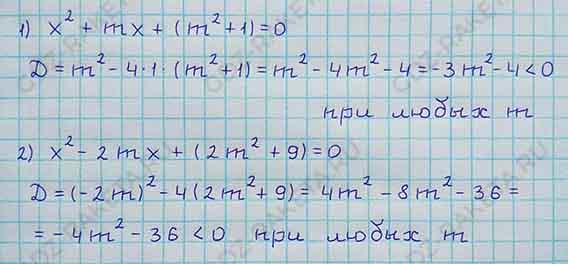 1) x² + mx + (m² + 1) = 0
D = m² - 4·1·(m² + 1) = m² - 4m² - 4 = -3m² - 4 < 0
при любых m
2) x² - 2mx + (2m² + 9) = 0
D = (-2m)² - 4(2m² + 9) = 4m² - 8m² - 36 =
= -4m² - 36 < 0 при любых m